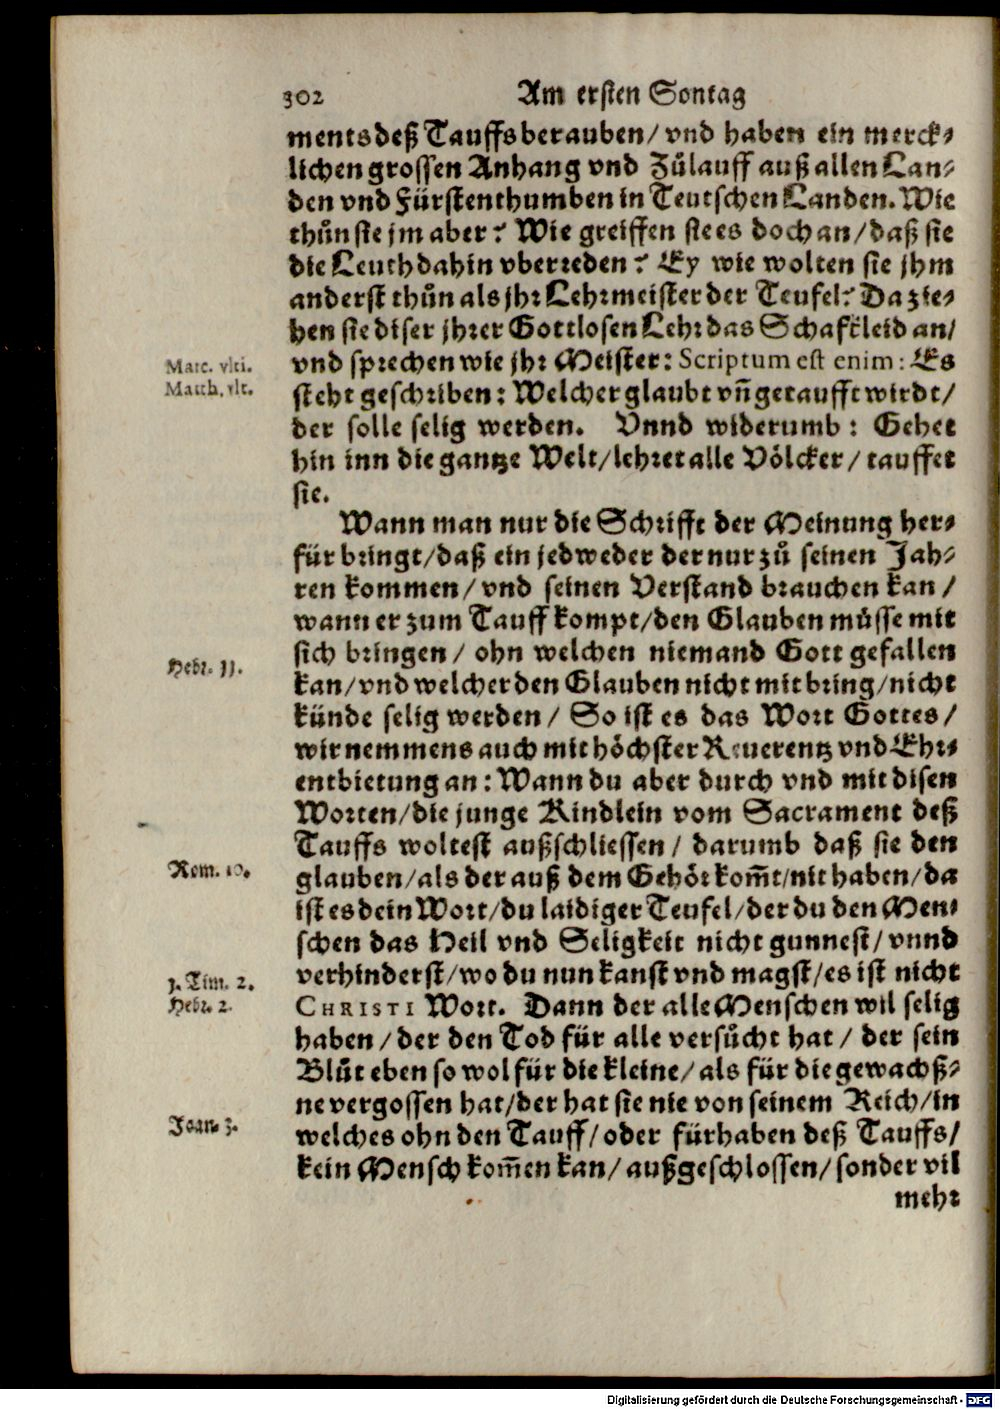 302 Am ersten Sontag
ments deß Tauffs berauben/ vnd haben ein merck⸗
lichen grossen Anhang vnd Zůlauff auß allen Lan⸗
den vnd Fürstenthumben in Teutschen Landen. Wie
thůn sie jm aber? Wie greiffen sie es doch an/ daß sie
die Leuth dahin vberreden? Ey wie wolten sie jhm
anderst thůn als jhr Lehrmeister der Teufel? Da zie⸗
hen sie diser jhrer Gottlosen Lehr das Schafkleid an/
Marc. vlti.
Matth. vlt.
vnd sprechen wie jhr Meister: Scriptum est enim: Es
steht geschriben: Welcher glaubt vñ getaufft wirdt/
der solle selig werden. Vnnd widerumb: Gehet
hin inn die gantze Welt/ lehret alle Völcker/ tauffet
sie.
Wann man nur die Schrifft der Meinung her⸗
für bringt/ daß ein jedweder der nur zů seinen Jah⸗
ren kommen/ vnd seinen Verstand brauchen kan/
wann er zum Tauff kompt/ den Glauben müsse mit
sich bringen/ ohn welchen niemand Gott gefallen
Hebr. 11.
kan/ vnd welcher den Glauben nicht mit bring/ nicht
künde selig werden/ So ist es das Wort Gottes/
wir nemmens auch mit höchster Reuerentz vnd Ehr⸗
entbietung an: Wann du aber durch vnd mit disen
Worten/ die junge Kindlein vom Sacrament deß
Tauffs woltest außschliessen/ darumb daß sie den
Rom. 10.
glauben/ als der auß dem Gehör kom̃t/ nit haben/ da
ist es dein Wort/ du laidiger Teufel/ der du den Men⸗
schen das Heil vnd Seligkeit nicht gunnest/ vnnd
verhinderst/ wo du nun kanst vnd magst/ es ist nicht
1. Tim. 2.
Hebr. 2.
CHRISTI Wort. Dann der alle Menschen wil selig
haben/ der den Tod für alle versůcht hat/ der sein
Blůt eben so wol für die kleine/ als für die gewachß⸗
ne vergossen hat/ der hat sie nie von seinem Reich/ in
Joan. 3.
welches ohn den Tauff/ oder fürhaben deß Tauffs/
kein Mensch kom̃en kan/ außgeschlossen/ sonder vil
mehr
Digitalisierung gefördert durch die Deutsche Forschungsgemeinschaft - DFG